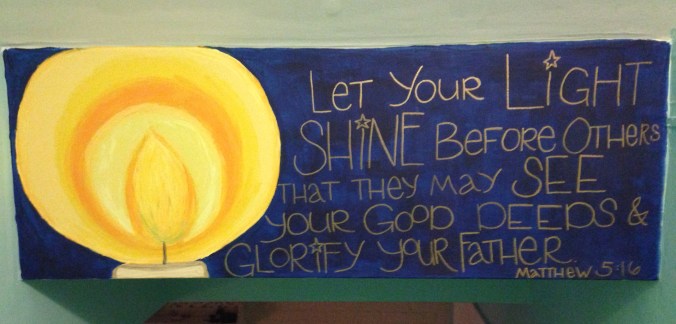 Let Your LIGHT
SHiNE Before Others
that they may SEE
your Good DEEDS &
GLORiFY your Father.
Matthew 5:16